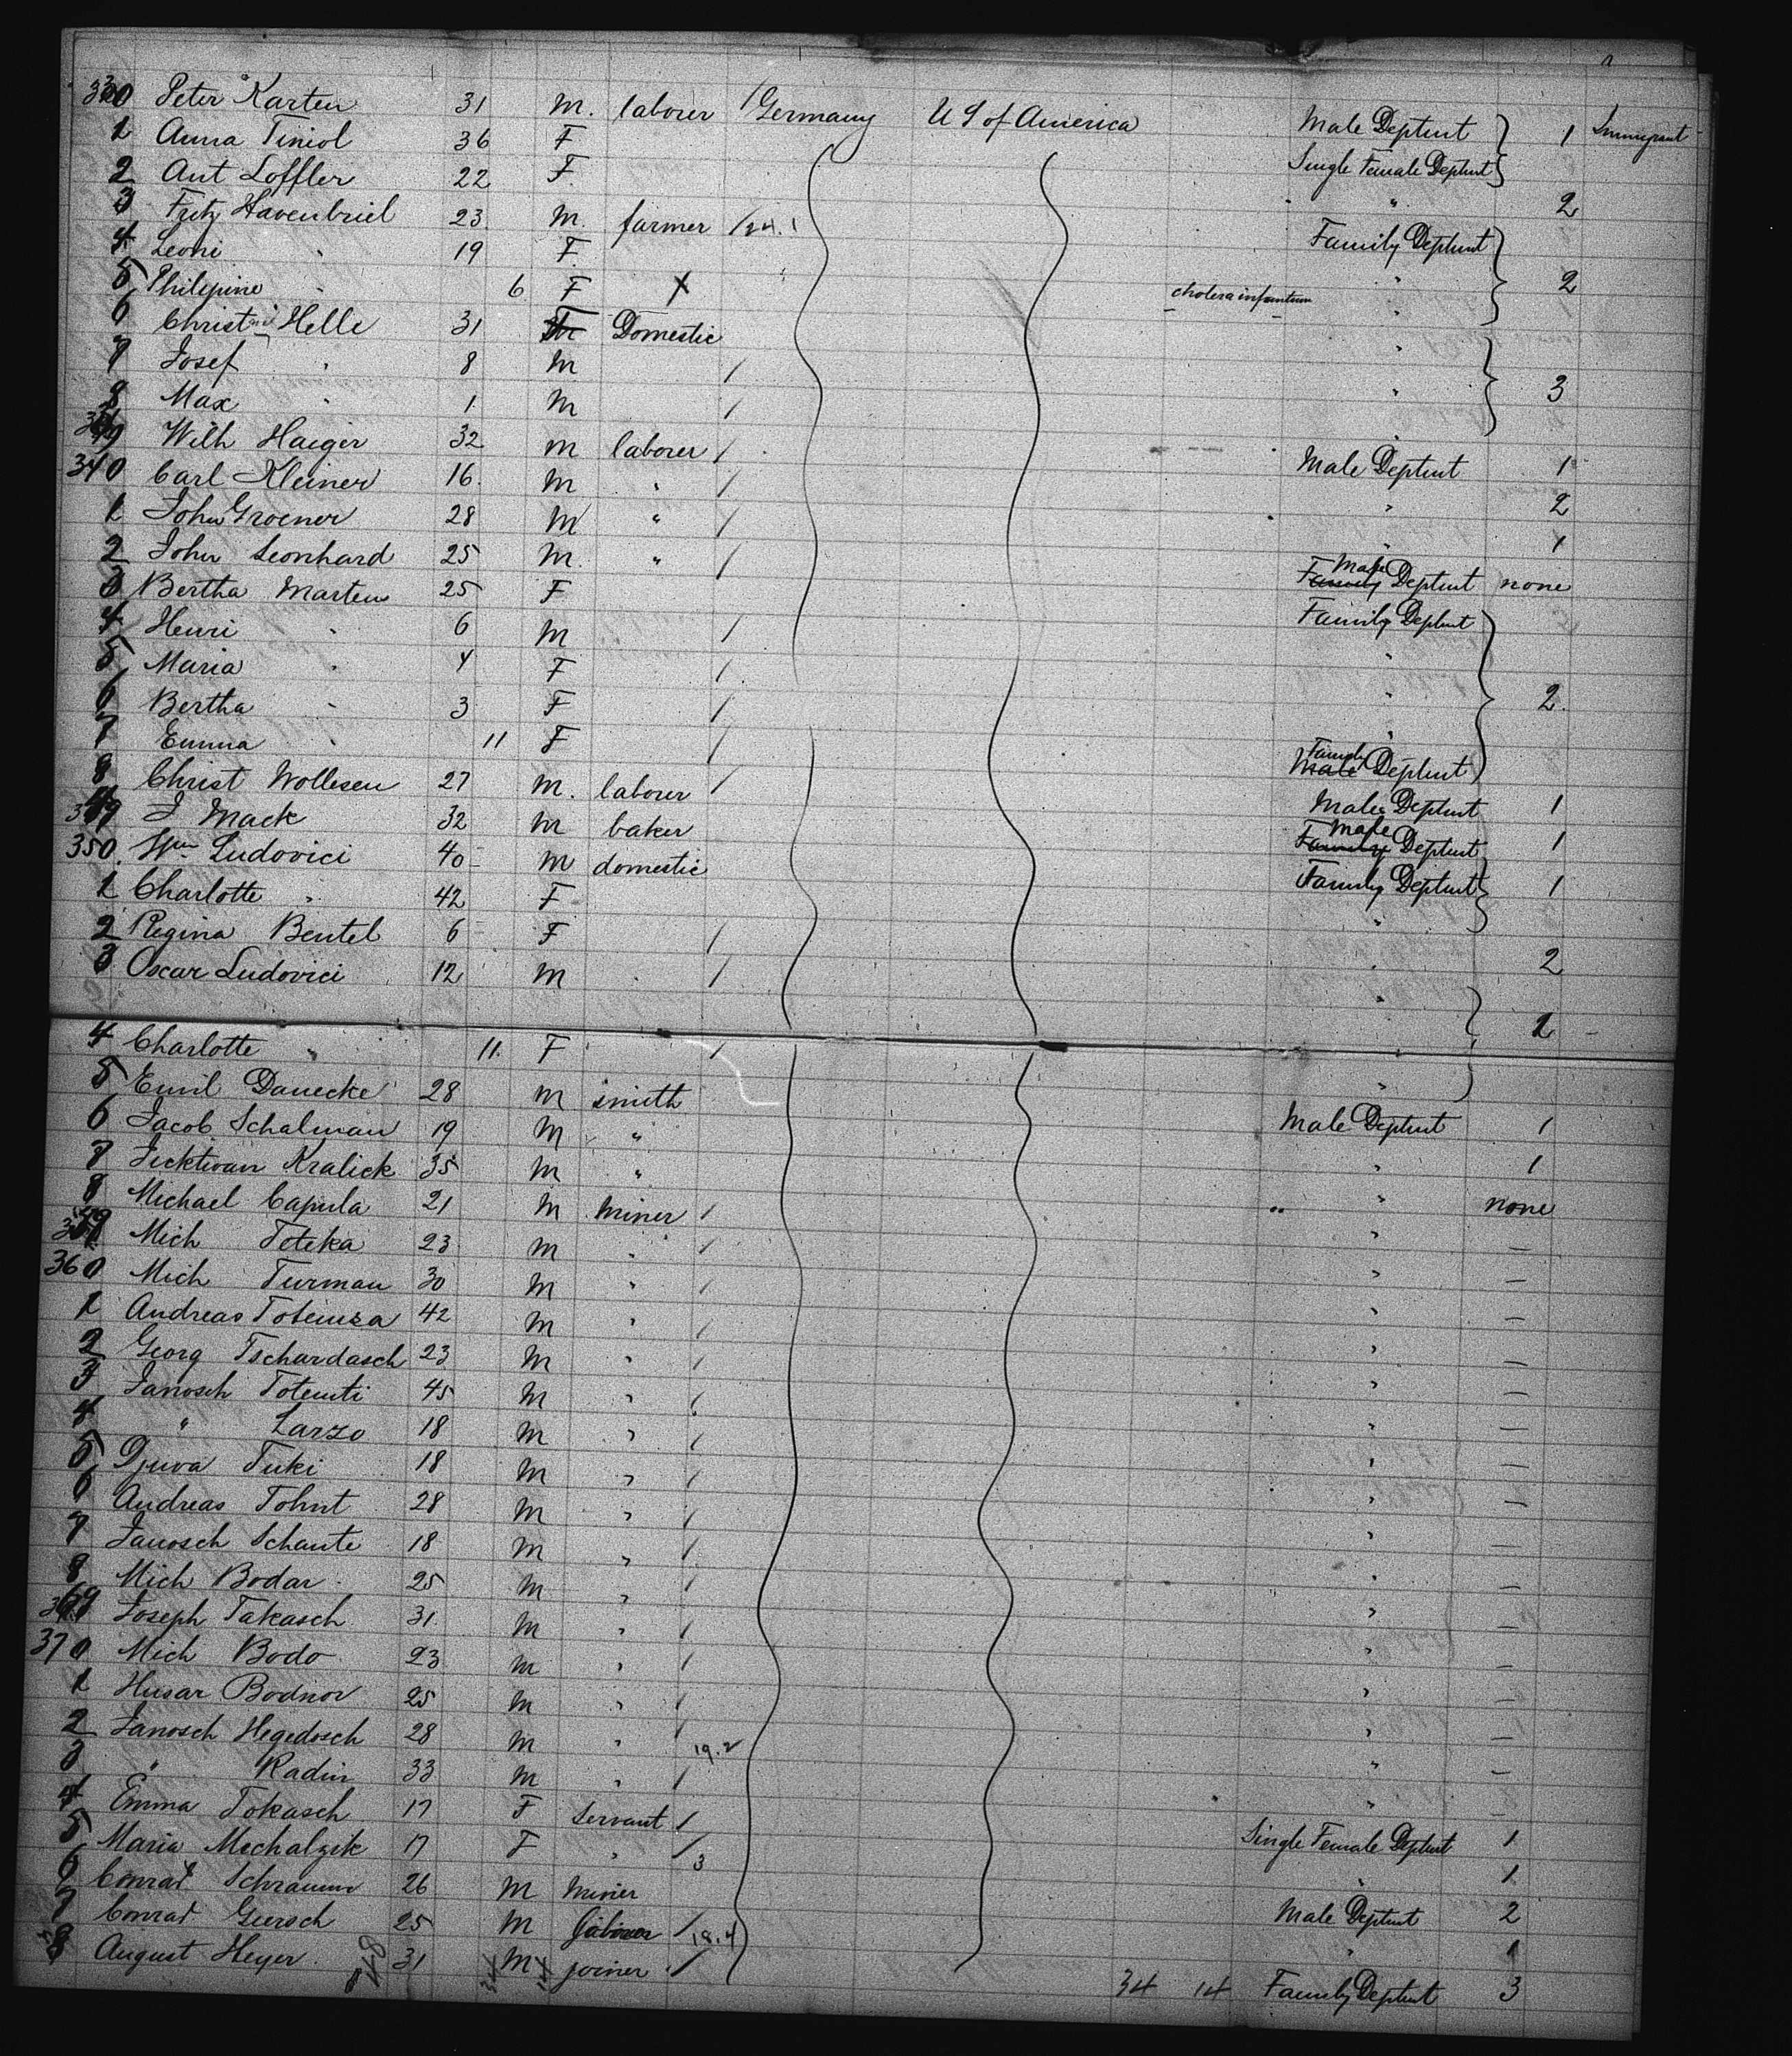 330 Peter Karten 31 M. laborer Germany U S of America Male Deptmt 1 Immigrant
1 Anna Tiniol 36 F Single Female Deptmt
2 Ant Loffler 22 F. " 2
3 Fritz Havenbriel 23 M. farmer 24.1 Family Deptmt
4 Leoni " 19 F. "
5 Philipine " 6 F X cholera infantum " 2
6 Christ Helle 31 F Domestic "
7 Josef " 8 M "
8 Max " 1 M " 3
339 Wilh Haeger 32 M laborer Male Deptmt 1
340 Carl Kleiner 16 M " " 2
1 John Groener 28 M " " 1
2 John Leonhard 25 M. " Male Family Deptmt none
3 Bertha Marten 25 F Family Deptmt
4 Henri " 6 M "
5 Maria " 4 F "
6 Bertha " 3 F " 2
7 Emma " 11 F Family Male Deptmt
8 Christ Wollesen 27 M. laborer Male Deptmt 1
349 J Mack 32 M baker Male Family Deptmt 1
350 Wm Ludovici 40 M domestic Family Deptmt 1
1 Charlotte " 42 F "
2 Regina Bentel 6 F " 2
3 Oscar Ludovici 12 M " 2
4 Charlotte " 11 F "
5 Emil Danecke 28 M smith Male Deptmt 1
6 Jacob Schalman 19 M " " 1
7 Kralick 35 M " " none
8 Michael Capula 21 M miner " —
359 Mich Toteka 23 M " " —
360 Mich Turman 30 M " " —
1 Andreas 42 M " " —
2 Georg Tschardasch 23 M " " —
3 Janosch Totemti 45 M " " —
4 " Larzo 18 M " " —
5 Djuva Tuki 18 M " " —
6 Andreas Tohnt 28 M " " —
7 Janosch Schante 18 M " " —
8 Mich Bodar 25 M " " —
369 Joseph Takasch 31 M " " —
370 Mich Bodo 23 M " " —
1 Husar Bodnor 25 M " " —
2 Janosch Hegedosch 28 M " 19.2 " —
3 " Radin 33 M " " —
4 Emma Tokasch 17 F Servant Single Female Deptmt 1
5 Maria Mechalzik 17 F " 3 " 1
6 Conrad Schramm 26 M miner Male Deptmt 2
7 Conrad Giersch 25 M laborer 18.4 " 1
8 August Heyer 31 M joiner 34 14 Family Deptmt 3